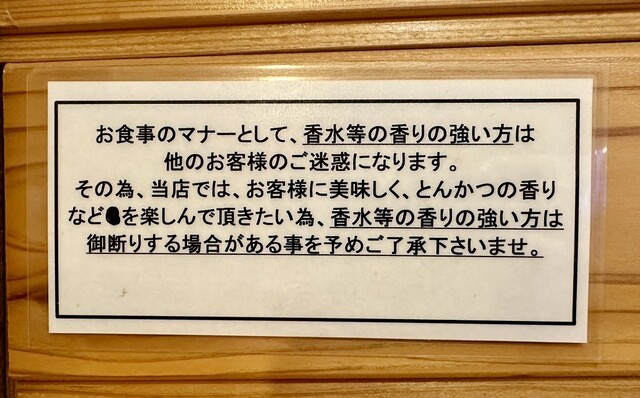 お食事のマナーとして、香水等の香りの強い方は
他のお客様のご迷惑になります。
その為、当店では、お客様に美味しく、とんかつの香り
などを楽しんで頂きたい為、香水等の香りの強い方は
御断りする場合がある事を予めご了承下さいませ。